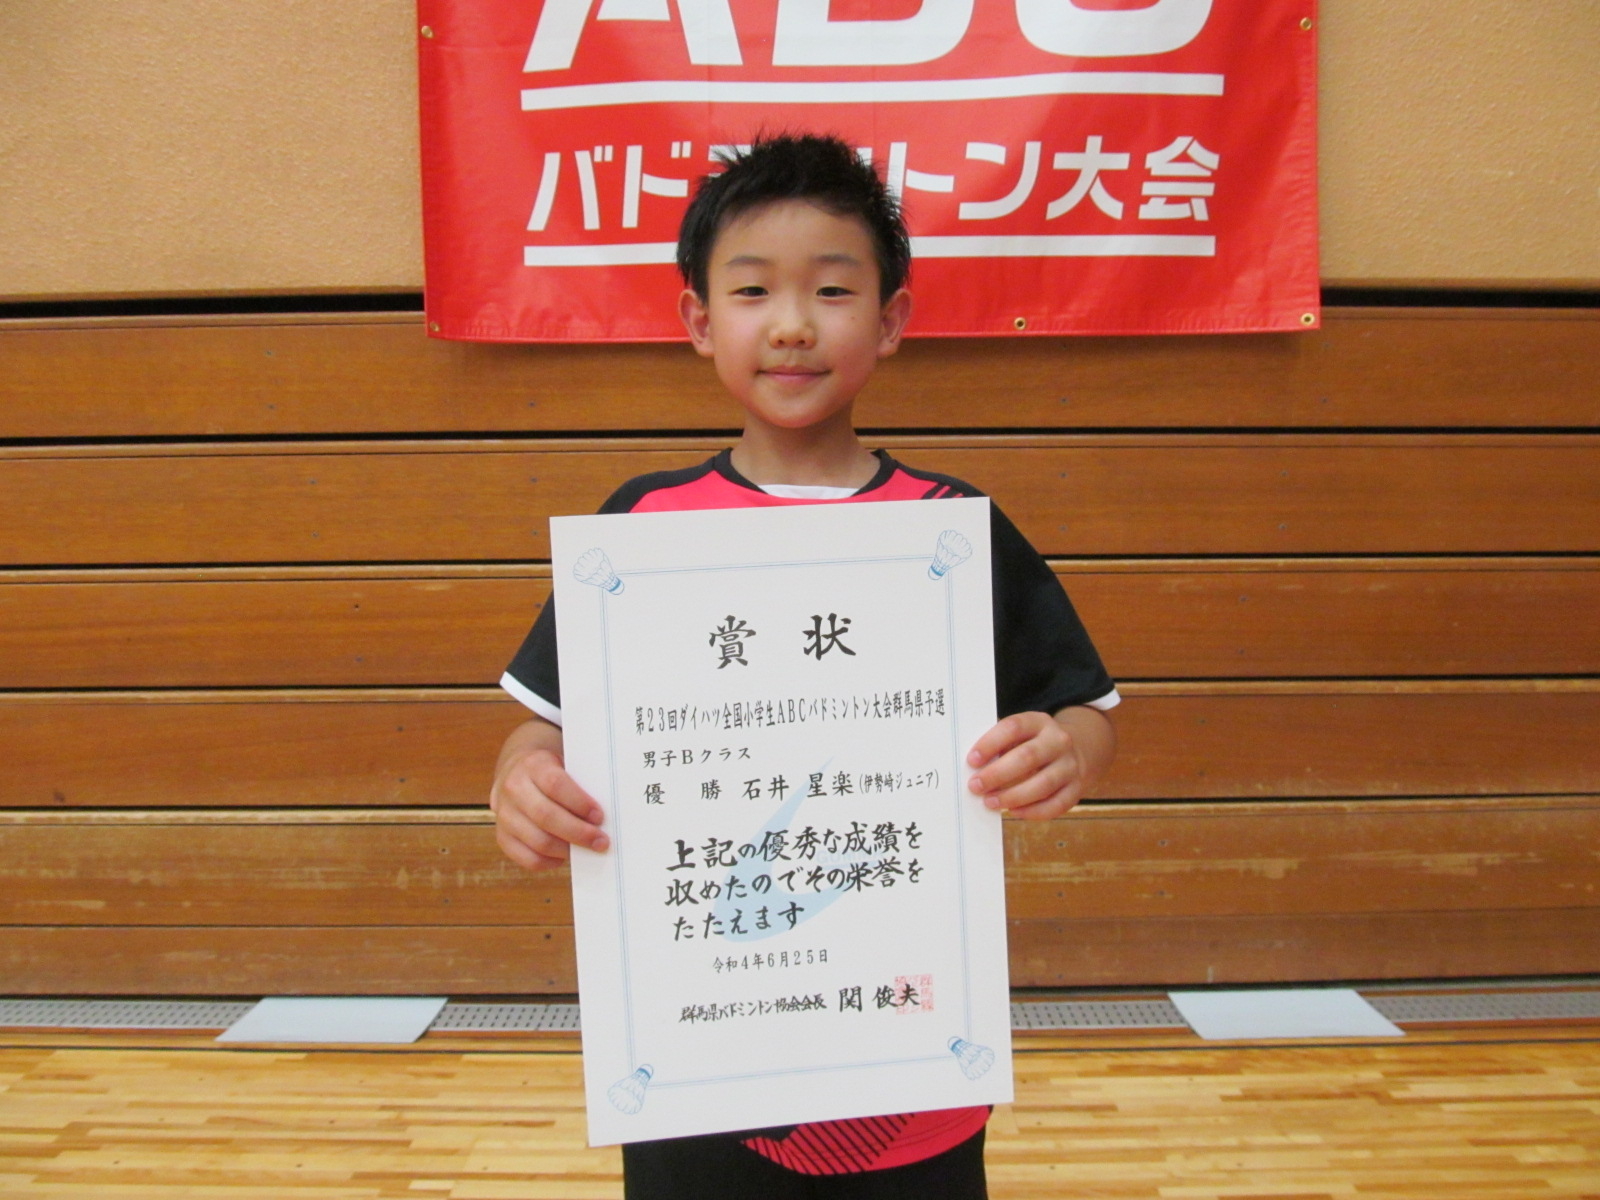 ABC
バドミントン大会
賞状
第23回ダイハツ全国小学生ABCバドミントン大会群馬県予選
男子Bクラス
優勝 石井 星楽(伊勢崎ジュニア)
上記の優秀な成績を
収めたのでその栄誉を
たたえます
令和4年6月25日
群馬県バドミントン協会会長 関 俊夫